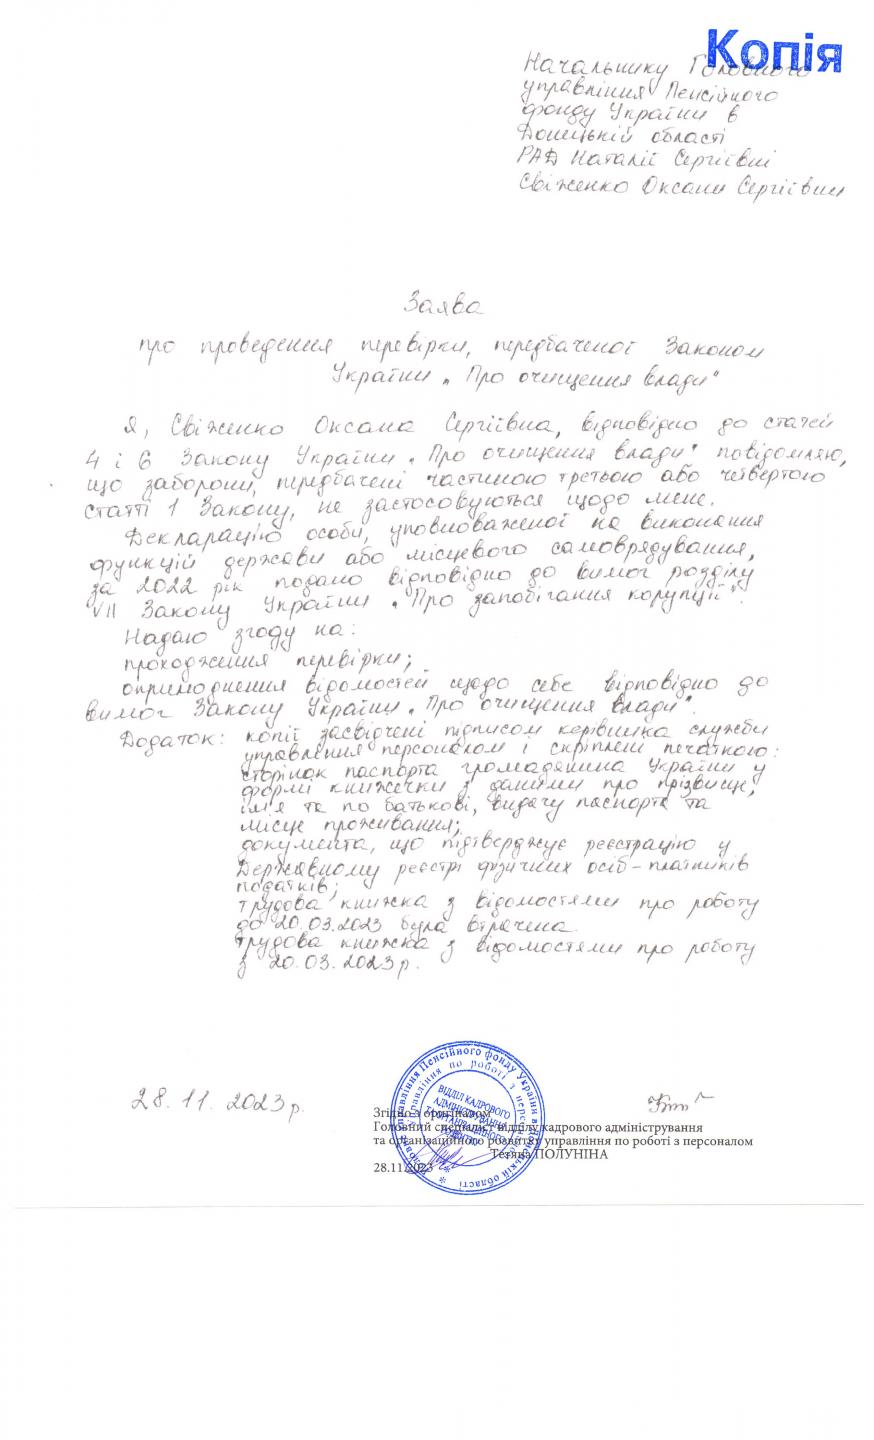 Копія
Начальнику Головного
управління Пенсійного
фонду України в
Донецькій області
РАД Наталії Сергіївні
Свіженко Оксани Сергіївни
Заява
про проведення перевірки, передбаченої Законом
України „Про очищення влади"
Я, Свіженко Оксана Сергіївна, відповідно до статей
4 і 6 Закону України „Про очищення влади" повідомляю,
що заборони, передбачені частиною третьою або четвертою
статті 1 Закону, не застосовуються щодо мене.
Декларацію особи, уповноваженої на виконання
функцій держави або місцевого самоврядування,
за 2022 рік подано відповідно до вимог розділу
VII Закону України „Про запобігання корупції".
Надаю згоду на:
проходження перевірки;
оприлюднення відомостей щодо себе відповідно до
вимог Закону України „Про очищення влади".
Додаток: копії засвідчені підписом керівника служби
управління персоналом і скріплені печаткою:
сторінок паспорта громадянина України у
формі книжечки з даними про прізвище,
ім'я та по батькові, видачу паспорта та
місце проживання;
документа, що підтверджує реєстрацію у
Державному реєстрі фізичних осіб-платників
податків;
трудова книжка з відомостями про роботу
до 20.03.2023 була втрачена.
трудова книжка з відомостями про роботу
з 20.03.2023р.
28.11.2023р.
Згідно з оригіналом
Головний спеціаліст відділу кадрового адміністрування
та організаційного розвитку управління по роботі з персоналом
Тетяна ПОЛУНІНА
28.11.2023
управління Пенсійного фонду України в Донецькій області
Управління по роботі з персоналом
ВІДДІЛ КАДРОВОГО
АДМІНІСТРУВАННЯ
ТА ОРГАНІЗАЦІЙНОГО
РОЗВИТКУ